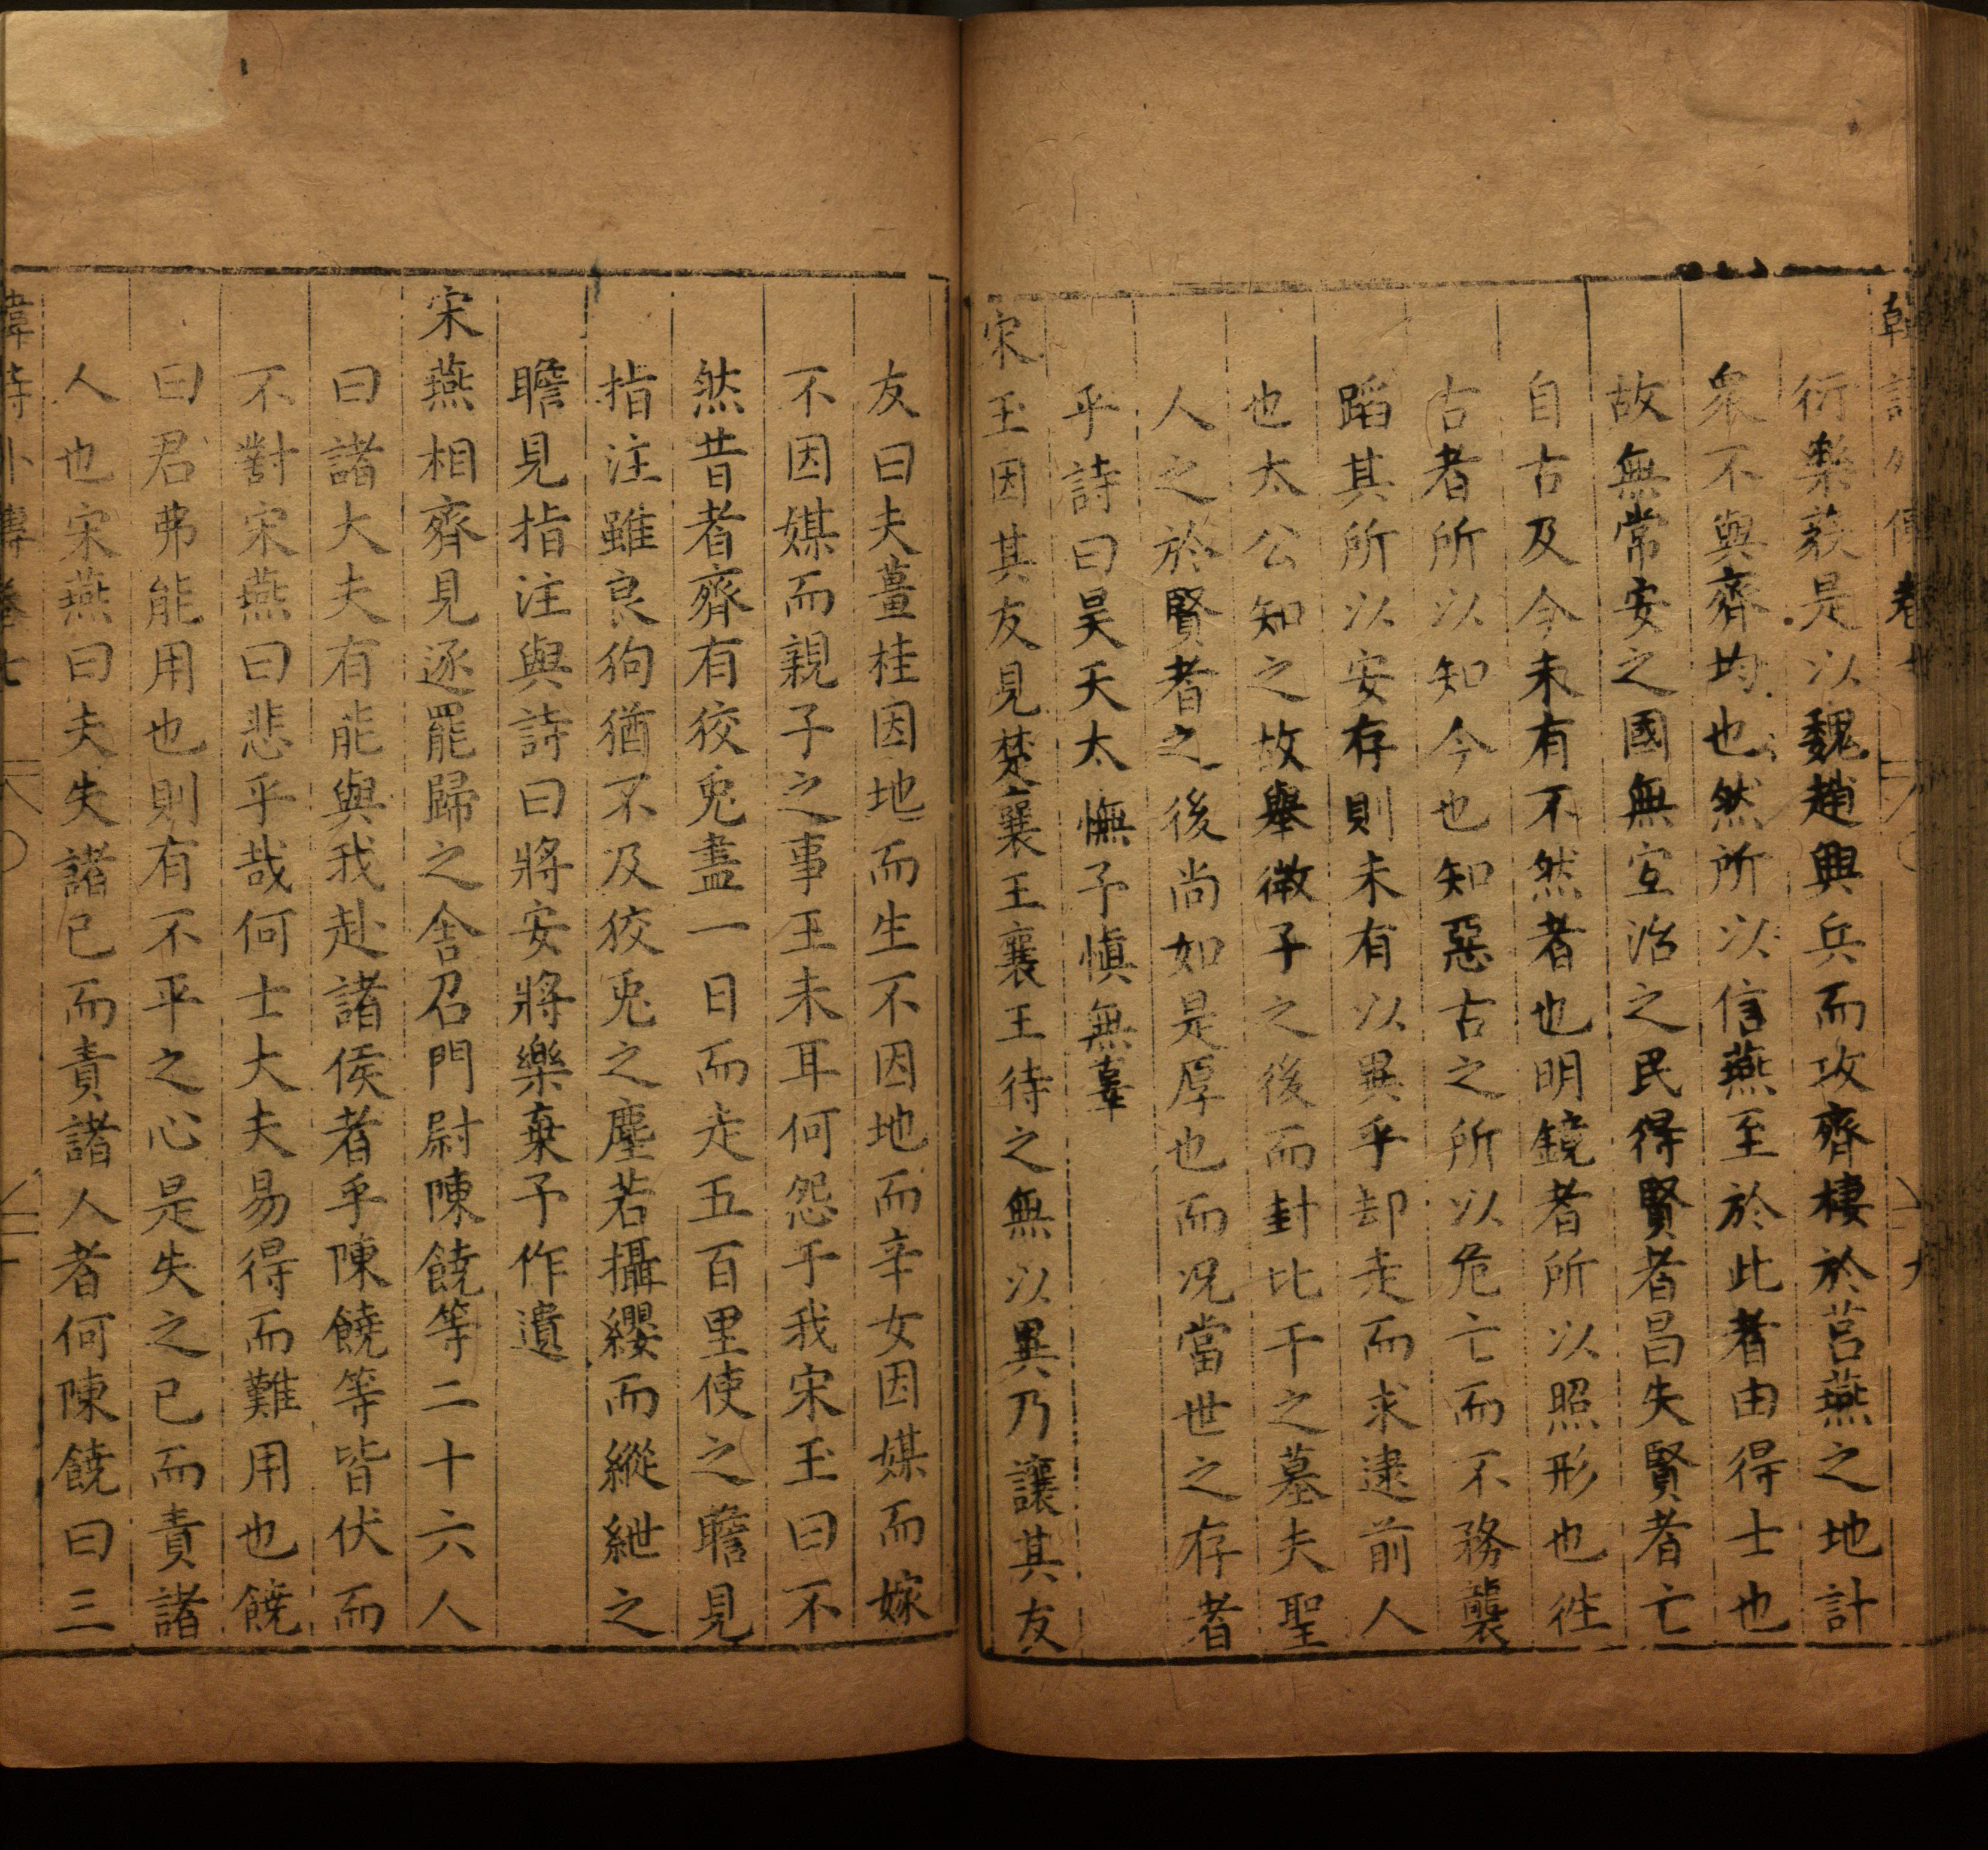 衍樂毅是以魏趙興兵而攻齊棲於莒燕之地計
衆不與齊均也然所以信燕至於此者由得士也
故無常安之國無宜治之民得賢者昌失賢者亡
自古及今未有不然者也明鏡者所以照形也徃
古者所以知今也知惡古之所以危亡而不務襲
蹈其所以安存則未有以異乎却走而求逮前人
也太公知之故舉微子之後而封比干之墓夫聖
人之於賢者之後尚如是厚也而况當世之存者
乎詩曰昊天太憮予愼無辜
宋玉因其友見楚襄王襄王待之無以異乃讓其友
友曰夫薑桂因地而生不因地而辛女因媒而嫁
不因媒而親子之事王未耳何怨于我宋玉曰不
然昔者齊有狡兎盡一日而走五百里使之瞻見
指注雖良狗猶不及狡兎之塵若攝纓而縱紲之
瞻見指注與詩曰將安將樂棄予作遺
宋燕相齊見逐罷歸之舍召門尉陳饒等二十六人
曰諸大夫有能與我赴諸侯者乎陳饒等皆伏而
不對宋燕曰悲乎哉何士大夫易得而難用也饒
曰君弗能用也則有不平之心是失之已而責諸
人也宋燕曰夫失諸已而責諸人者何陳饒曰三